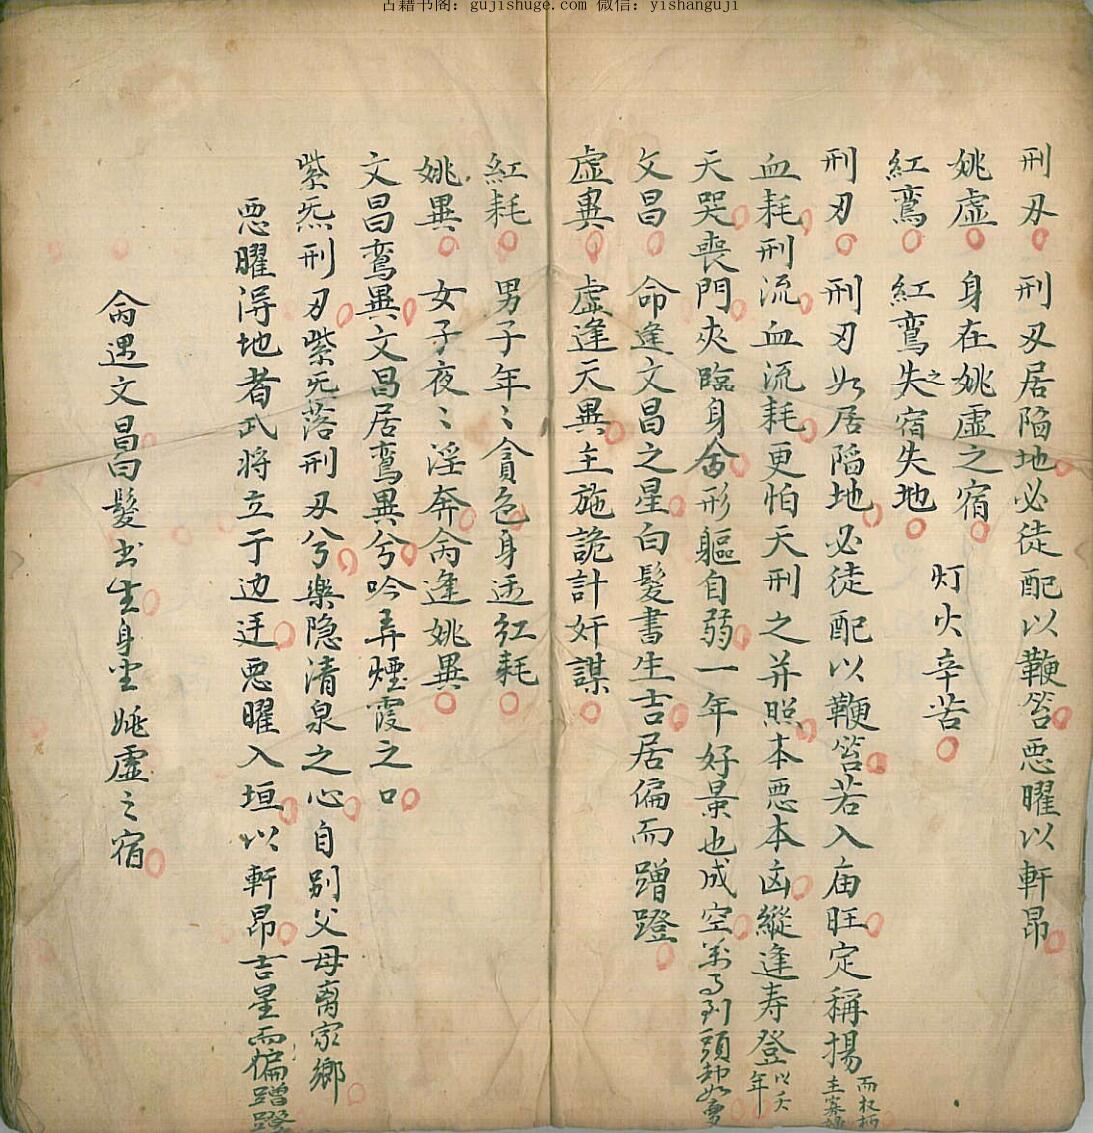 古籍书阁：gujishuge.com 微信：yishanguji
刑刃 刑刃居陷地必徒配以鞭笞恶曜以軒昂
姚虚 身在姚虚之宿 灯火辛苦
紅鸞 紅鸞失之宿失地
刑刃 刑刃如居陷地必徒配以鞭笞若入庙旺定稱揚
血耗刑流血流耗更怕天刑之并照本恶本凶縱逢寿登
天哭喪門夾臨身舍形軀自弱一年好景也成空萬事到頭却如夢
文昌 命逢文昌之星白髮書生吉居偏而蹭蹬
虚異 虚逢天異主施詭計奸謀
紅耗 男子年〻貪色身逢红耗
姚異 女子夜〻淫奔侖逢姚異
文昌鸞異文昌居鸞異兮吟弄煙霞之口
紫炁刑刃紫炁落刑刃兮樂隐清泉之心自别父母离家鄉
恶曜得地者武将立于边廷恶曜入垣以軒昂吉星而偏蹭蹬
侖遇文昌白髮书生身坐姚虚之宿